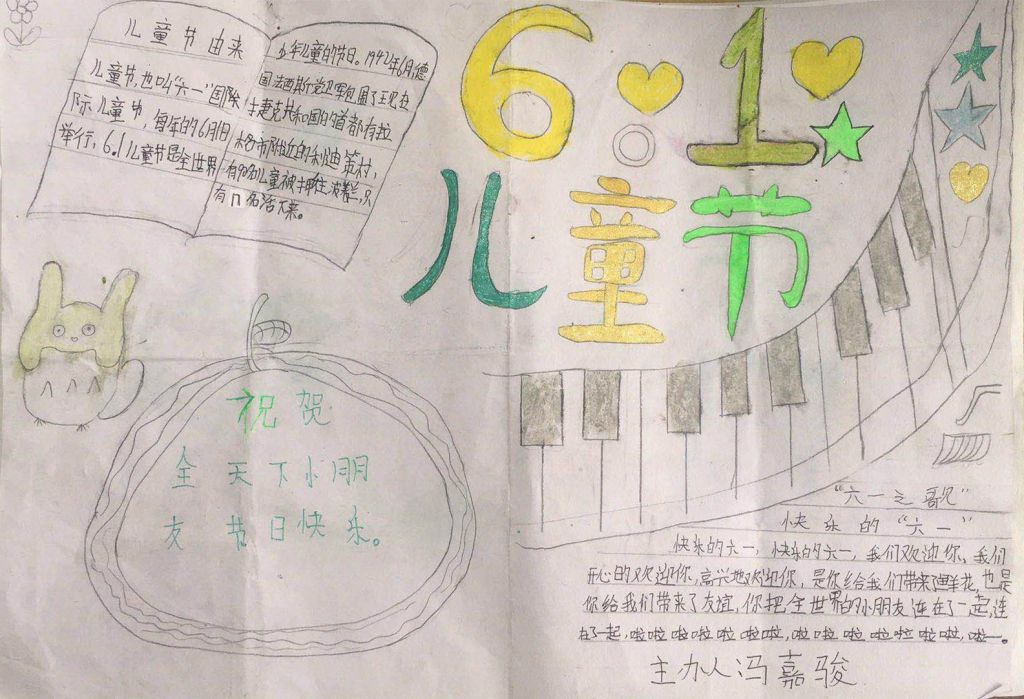 儿童节由来
儿童节,也叫“六一”国际
际儿童节,每年的6月1日
举行,6.1儿童节是全世界
少年儿童的节日。1942年6月,德
国法西斯党卫军包围了王见在
捷克共和国的首都布拉
格市附近的利迪策村,
有90名儿童被押往波兰,只
有几名活下来。
6.1
儿童节
祝贺
全天下小朋
友节日快乐。
“六一之歌”
快乐的“六一”
快乐的六一,快乐的六一,我们欢迎你,我们
开心的欢迎你,高兴地欢迎你,是你给我们带来了鲜花,也是
你给我们带来了友谊,你把全世界的小朋友连在了一起,连
在了一起,啦啦啦啦啦啦啦,啦啦啦啦啦啦啦,啦。
主办人冯嘉骏